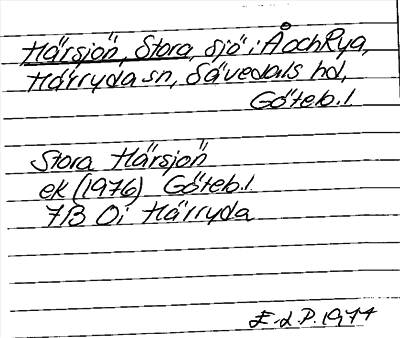 Härsjön, Stora, sjö i Å och Rya,
Härryda sn, Sävedals hd,
Göteb. l.
Stora Härsjön
ek (1976) Göteb. l.
7B Oi Härryda
1974